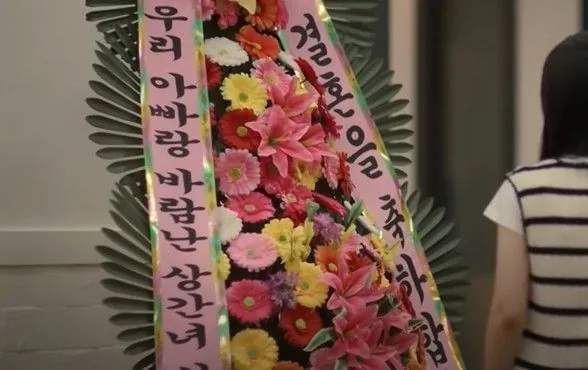 우리 아빠랑 바람난 상간녀
결혼을 축하합